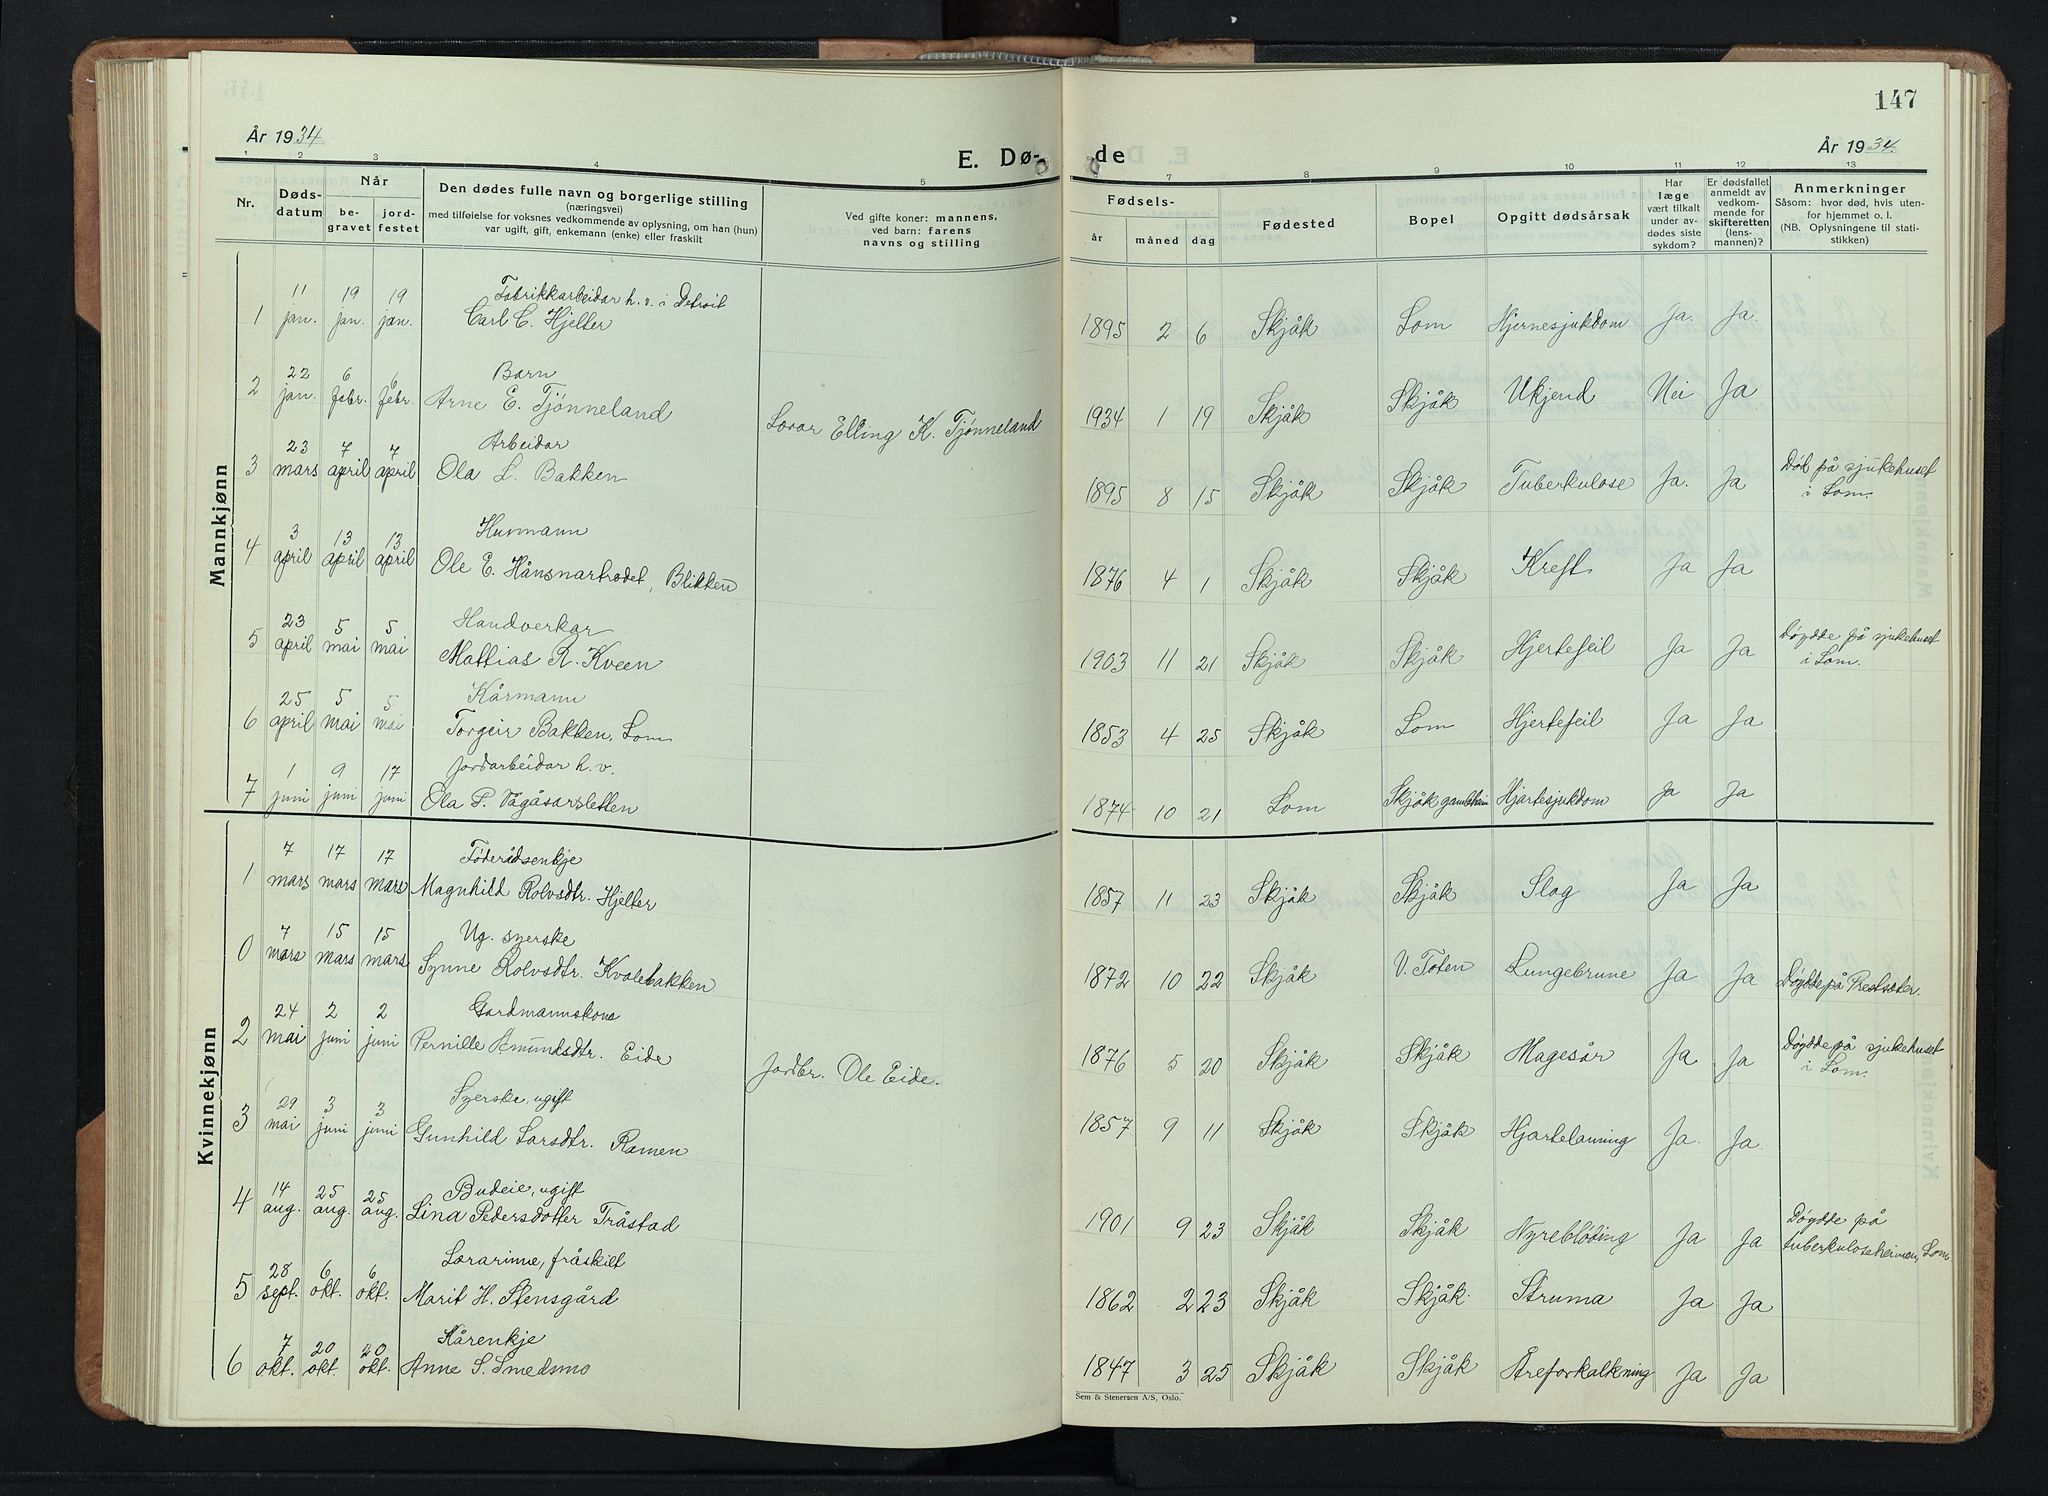 147
År 1934
E. Dø-
de
År 1934.
1 2 3 4 5 6 7 8 9 10 11 12 13
Nr.
Døds-
datum
Når
be-
gravet
jord-
festet
Den dødes fulle navn og borgerlige stilling
(næringsvei)
med tilføielse for voksnes vedkommende av oplysning, om han (hun)
var ugift, gift, enkemann (enke) eller fraskilt
Ved gifte koner: mannens,
ved barn: farens
navns og stilling
Fødsels-
år måned dag
Fødested
Bopel
Opgitt dødsårsak
Har
læge
vært tilkalt
under av-
dødes siste
sykdom?
Er dødsfallet
anmeldt av
vedkom-
mende for
skifteretten
(lens-
mannen)?
Anmerkninger
Såsom: hvor død, hvis uten-
for hjemmet o. l.
(NB. Oplysningene til stati-
stikken)
Mannkjønn
11 19 19 Fabrikkarbeidar h. v. i Detroit
1 jan. jan. jan. Carl C. Hjelter 1895 2 6 Skjåk Lom Hjernesjukdom Ja. Ja.
22 6 6 Barn
2 jan. febr. febr. Arne E. Tjønneland Lærar Elling K. Tjønneland 1934 1 19 Skjåk Skjåk Ukjend Nei Ja
23 7 7 Arbeidar
3 mars april april Ola L. Bakken 1895 8 15 Skjåk Skjåk Tuberkulose Ja. Ja Død på sjukehuset
i Lom.
3 13 13 Husmann
4 april april april Ole E. Hånsnartrødet, Blikken 1876 4 1 Skjåk Skjåk Kreft Ja Ja
23 5 5 Handverkar
5 april mai mai Mattias R. Kveen 1903 11 21 Skjåk Skjåk Hjertefeil Ja Ja Døydde på sjukehuset
i Lom.
25 5 5 Kårmann
6 april mai mai Torgeir Bakken, Lom 1853 4 25 Skjåk Lom Hjertefeil Ja Ja
1 9 17 Jordarbeidar h. v.
7 juni juni juni Ola P. Vågåsarsletten 1874 10 21 Lom Skjåk gamleheim Hjartesjukdom Ja Ja
Kvinnekjønn
7 17 17 Føderådsenkje
1 mars mars mars Magnhild Rolvsdtr. Hjelter 1857 11 23 Skjåk Skjåk Slag Ja Ja
7 15 15 Ug. syerske
0 mars mars mars Synne Rolvsdtr. Kvalebakken 1872 10 22 Skjåk V. Toten Lungebrune Ja Ja Døydde på Prestsæter.
24 2 2 Gardmannskona
2 mai juni juni Pernille Amundsdtr. Eide Jordbr. Ole Eide. 1876 5 20 Skjåk Skjåk Magesår Ja Ja Døydde på sjukehuset
i Lom.
29 3 3 Syerske, ugift
3 mai juni juni Gunhild Larsdtr. Ramen 1857 9 11 Skjåk Skjåk Hjartelaming Ja. Ja.
14 25 25 Budeie, ugift
4 aug. aug. aug. Lina Pedersdotter Tråstad 1901 9 23 Skjåk Skjåk Nyreblöding Ja Ja Døydde på
tuberkuloseheimen, Lom
28 6 6 Lærarinne, fråskilt
5 sept. okt. okt. Marit H. Stensgård 1862 2 23 Skjåk Skjåk Struma Ja Ja
7 20 20 Kårenkje
6 okt. okt. okt. Anne S. Smedsmo 1847 3 25 Skjåk Skjåk Åreforkalkning Ja Ja
Sem & Stenersen A/S, Oslo.